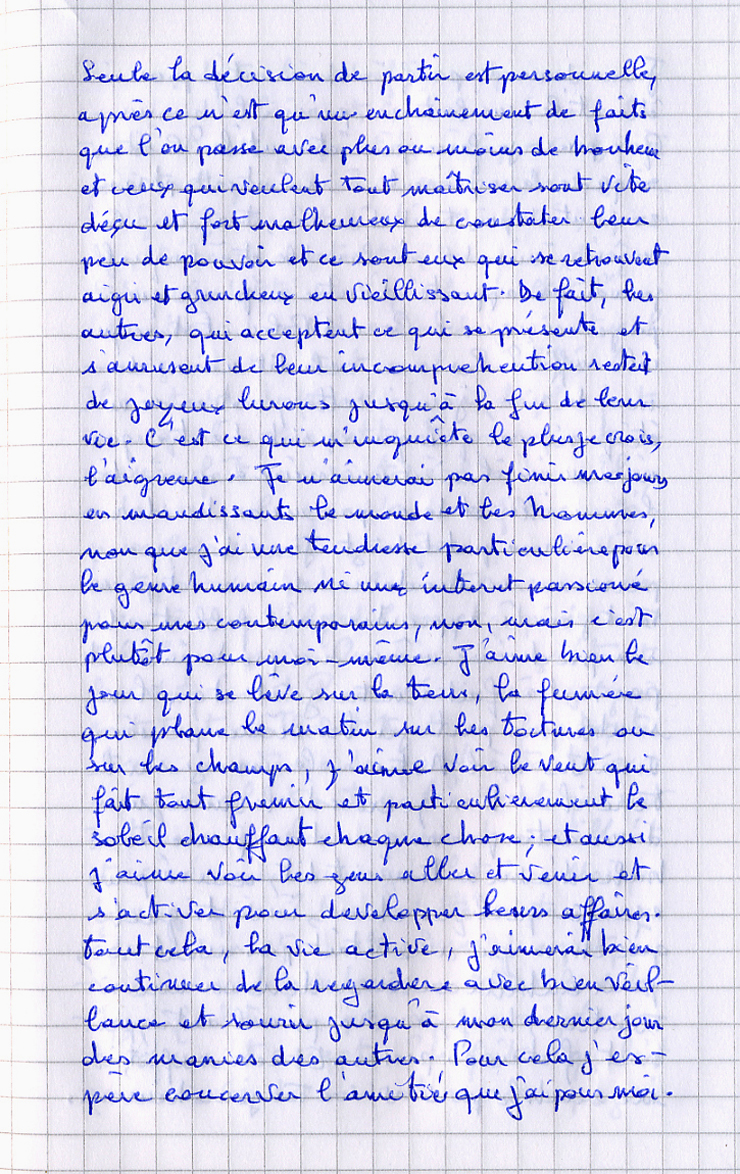 Seule la décision de partir est personnelle,
après ce n'est qu'un enchainement de faits
que l'on passe avec plus ou moins de bonheur
et ceux qui veulent tout maîtriser sont vite
déçu et fort malheureux de constater leur
peu de pouvoir et ce sont eux qui se retrouvent
aigri et grincheux en vieillissant. De fait, les
autres, qui acceptent ce qui se présente et
s'amusent de leur incomprehention restent
de joyeux lurons jusqu'à la fin de leur
vie. C'est ce qui m'inquiète le plus je crois,
l'aigreur. Je n'aimerai pas finir mes jours
en maudissants le monde et les hommes,
non que j'ai une tendresse particulière pour
le genre humain ni un interet passioné
pour mes contemporains, non, mais c'est
plutôt pour moi-même. J'aime bien le
jour qui se lève sur la terre, la fumée
qui plane le matin sur les toitures ou
sur les champs, j'aime voir le vent qui
fait tout fremir et particulierement le
soleil chauffant chaque chose; et aussi
j'aime voir les gens aller et venir et
s'activer pour developper leurs affaires.
tout cela, la vie active, j'aimerai bien
continuer de la regarder avec bienveil-
lance et sourir jusqu'à mon dernier jour
des manies des autres. Pour cela j'es-
père concerver l'amitié que j'ai pour moi.